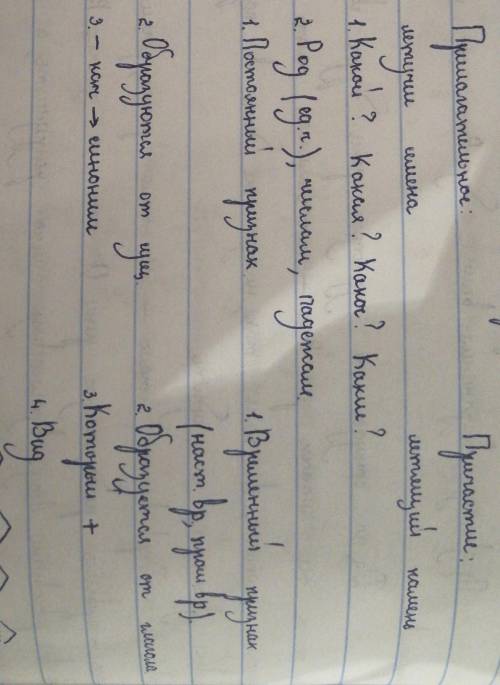 Прилагательное: Причастие:
летучие семена летящий камень
1. Какой? Какая? Какое? Какие?
2. Род (ед.ч.), числам, падежам.
1. Постоянный признак 1. Временный признак
(наст. вр, прош вр.).
2. Образуются от сущ. 2. Образуется от глагола
3. – как → синоним 3. Который +
4. Вид